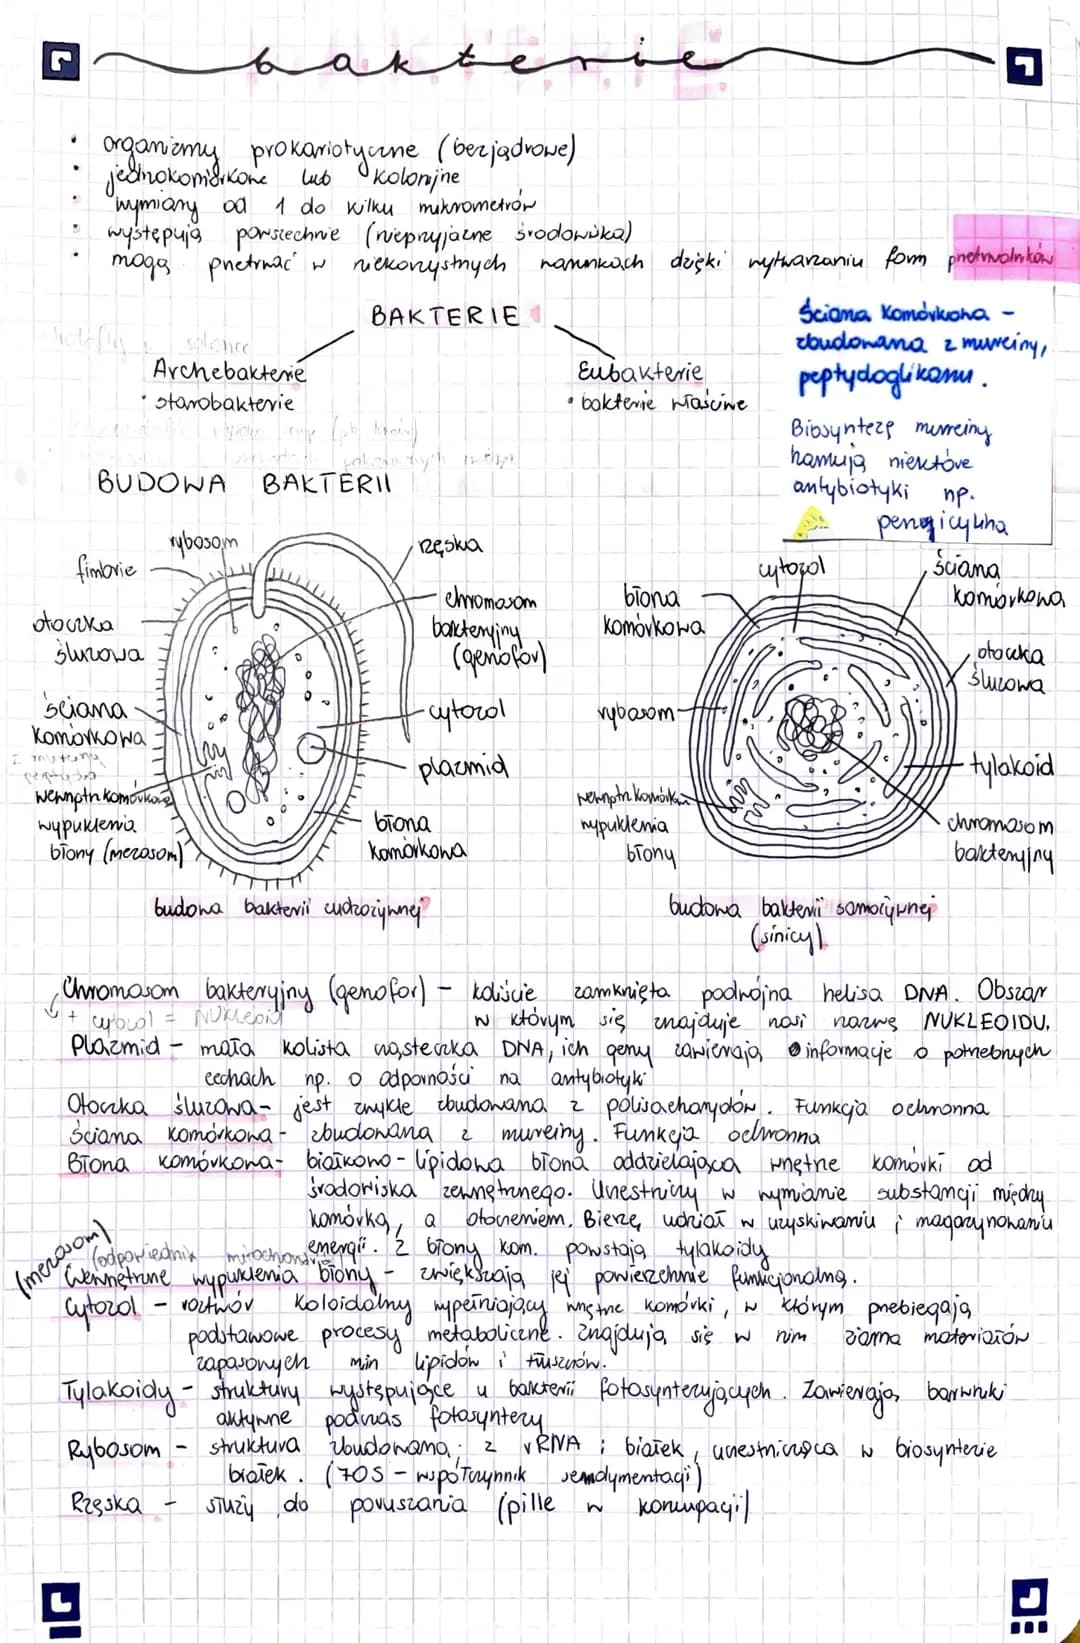 bakterie
• organizmy prokariotyczne (bezjądrowe)
• jednokomórkowe lub kolonijne
• wymiary od 1 do kilku mikrometrów
• występują powszechnie (nieprzyjazne środowiska)
• mogą przetrwać w niekorzystnych warunkach dzięki wytwarzaniu form przetrwalników
BAKTERIE
Archebakterie
• starobakterie
Eubakterie
• bakterie właściwe
Ściana komórkowa -
zbudowana z mureiny,
peptydoglikanu.
Biosyntezę mureiny
hamują niektóre
antybiotyki np.
BUDOWA BAKTERII
rybosom
fimbrie
otoczka
śluzowa
ściana
komórkowa
wewnątrzkomórkowe
wypuklenia
błony (mezosom)
rzęska
chromosom
bakteryjny
(genofor)
cytozol
plazmid
błona
komórkowa
budowa bakterii cudzożywnej
cytozol
błona
komórkowa
rybosom
wypuklenia
błony
ściana
komórkowa
otoczka
śluzowa
tylakoid
chromosom
bakteryjny
budowa bakterii samożywnej
(sinicy)
Chromosom bakteryjny (genofor) - koliście zamknięta podwójna helisa DNA. Obszar
+ cytozol = NUKLEOID
w którym się znajduje nosi nazwę NUKLEOIDU.
Plazmid - mała kolista cząsteczka DNA, ich geny zawierają informacje o potrzebnych
cechach np. o odporności na antybiotyki
Otoczka śluzowa - jest zwykle zbudowana z polisacharydów. Funkcja ochronna
Ściana komórkowa - zbudowana z mureiny. Funkcja ochronna
Błona komórkowa - białkowo-lipidowa błona oddzielająca wnętrze komórki od
środowiska zewnętrznego. Uczestniczy w wymianie substancji między
komórką, a otoczeniem. Bierze udział w uzyskiwaniu i magazynowaniu
energii. Z błony kom. powstają tylakoidy
(mezosom)
(odpowiednik mitochondrium
Wewnętrzne wypuklenia błony - zwiększają jej powierzchnie funkcjonalną.
Cytozol - roztwór koloidalny wypełniający wnętrze komórki, w którym przebiegają
podstawowe procesy metaboliczne. Znajdują się w nim ziarna materiałów
zapasowych min lipidów i tłuszczów.
Tylakoidy - struktury występujące u bakterii fotosyntezujących. Zawierają barwniki
aktywne podczas fotosyntezy
Rybosom - struktura zbudowana z rRNA i białek, uczestnicząca w biosyntezie
białek. (70S - współczynnik sendymentacji)
Rzęska - służy do poruszania (pille w koniugacji)